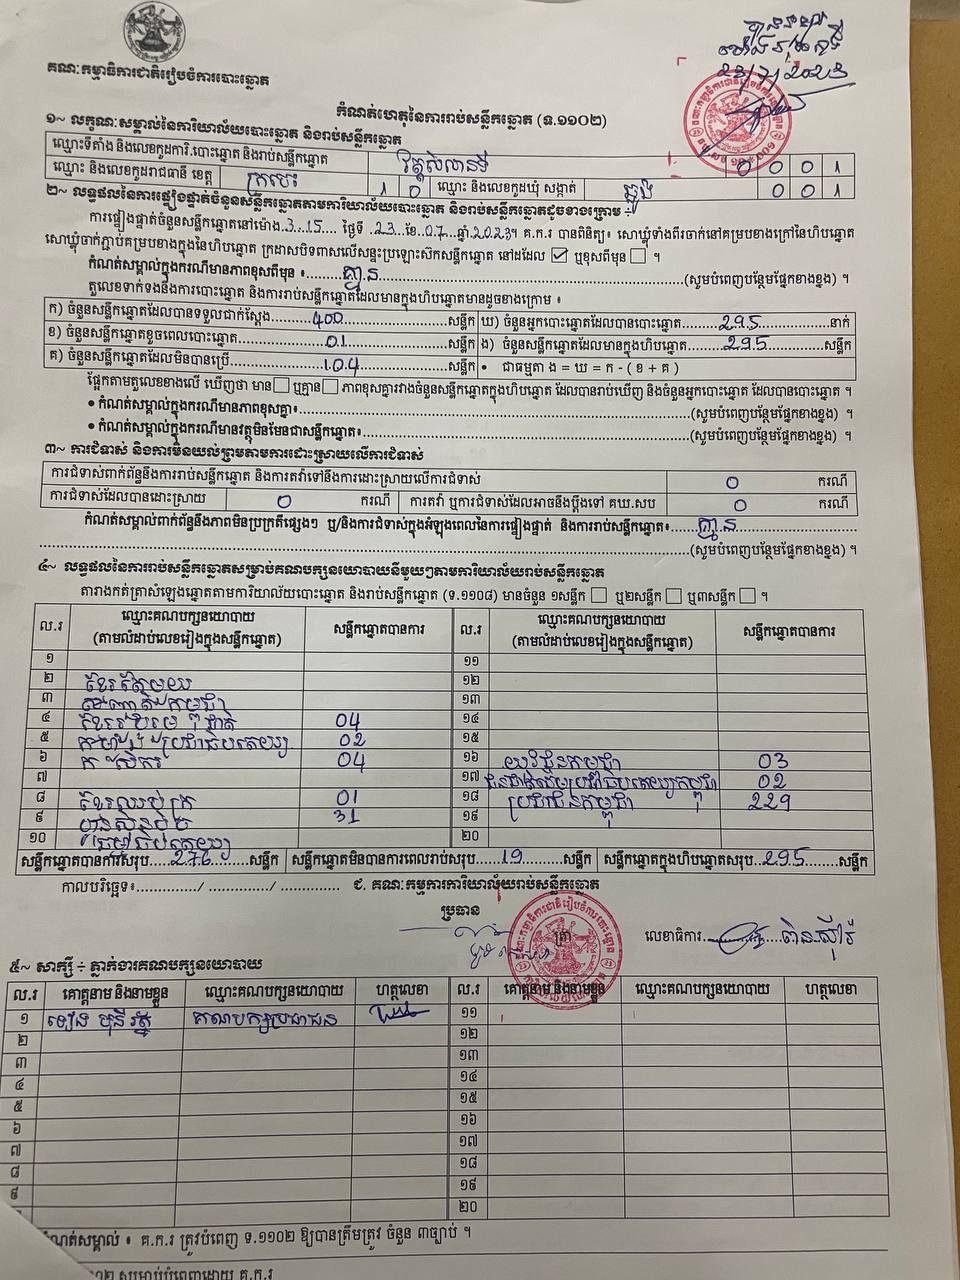 គណៈកម្មាធិការជាតិរៀបចំការបោះឆ្នោត
23/7/2023
កំណត់ហេតុនៃការរាប់សន្លឹកឆ្នោត (ទ.១១០២)
១~ លក្ខណៈសម្គាល់នៃការិយាល័យបោះឆ្នោត និងរាប់សន្លឹកឆ្នោត
ឈ្មោះទីតាំង និងលេខកូដការិ.បោះឆ្នោត និងរាប់សន្លឹកឆ្នោត 0 0 0 1
ឈ្មោះ និងលេខកូដរាជធានី ខេត្ត ក្រចេះ 1 0 ឈ្មោះ និងលេខកូដឃុំ សង្កាត់ ឆ្លូង 0 0 1
២~ លទ្ធផលនៃការផ្ទៀងផ្ទាត់ចំនួនសន្លឹកឆ្នោតតាមការិយាល័យបោះឆ្នោត និងរាប់សន្លឹកឆ្នោតដូចខាងក្រោម ÷
ការផ្ទៀងផ្ទាត់ចំនួនសន្លឹកឆ្នោតនៅម៉ោង.3.15 ថ្ងៃទី.23.ខែ.07.ឆ្នាំ.2023។ គ.ក.រ បានពិនិត្យ៖ សោឃ្លុំទាំងពីរចាក់នៅគម្របខាងក្រៅនៃហិបឆ្នោត
សោឃ្លុំចាក់ភ្ជាប់គម្របខាងក្នុងនៃហិបឆ្នោត ក្រដាសបិទពាសលើសន្ទះប្រឡោះស៊កសន្លឹកឆ្នោត នៅដដែល ✓ ឬខុសពីមុន ។
កំណត់សម្គាល់ក្នុងករណីមានភាពខុសពីមុន ៖ គ្មាន (សូមបំពេញបន្ថែមផ្នែកខាងខ្នង) ។
តួលេខទាក់ទងនឹងការបោះឆ្នោត និងការរាប់សន្លឹកឆ្នោតដែលមានក្នុងហិបឆ្នោតមានដូចខាងក្រោម ៖
ក) ចំនួនសន្លឹកឆ្នោតដែលបានទទួលជាក់ស្តែង 400 សន្លឹក ឃ) ចំនួនអ្នកបោះឆ្នោតដែលបានបោះឆ្នោត 295 នាក់
ខ) ចំនួនសន្លឹកឆ្នោតខូចពេលបោះឆ្នោត 01 សន្លឹក ង) ចំនួនសន្លឹកឆ្នោតដែលមានក្នុងហិបឆ្នោត 295 សន្លឹក
គ) ចំនួនសន្លឹកឆ្នោតដែលមិនបានប្រើ 104 សន្លឹក • ជាធម្មតា ង = ឃ = ក - ( ខ + គ )
ផ្អែកតាមតួលេខខាងលើ ឃើញថា មាន ឬគ្មាន ភាពខុសគ្នារវាងចំនួនសន្លឹកឆ្នោតក្នុងហិបឆ្នោត ដែលបានរាប់ឃើញ និងចំនួនអ្នកបោះឆ្នោត ដែលបានបោះឆ្នោត ។
• កំណត់សម្គាល់ក្នុងករណីមានភាពខុសគ្នា៖ (សូមបំពេញបន្ថែមផ្នែកខាងខ្នង) ។
• កំណត់សម្គាល់ក្នុងករណីមានវត្ថុមិនមែនជាសន្លឹកឆ្នោត៖ (សូមបំពេញបន្ថែមផ្នែកខាងខ្នង) ។
៣~ ការជំទាស់ និងការមិនយល់ព្រមតាមការដោះស្រាយលើការជំទាស់
ការជំទាស់ពាក់ព័ន្ធនឹងការរាប់សន្លឹកឆ្នោត និងការតវ៉ាទៅនឹងការដោះស្រាយលើការជំទាស់ 0 ករណី
ការជំទាស់ដែលបានដោះស្រាយ 0 ករណី ការតវ៉ា ឬការជំទាស់ដែលអាចនឹងប្តឹងទៅ គឃ.សប 0 ករណី
កំណត់សម្គាល់ពាក់ព័ន្ធនឹងភាពមិនប្រក្រតីផ្សេងៗ ឬ/និងការជំទាស់ក្នុងអំឡុងពេលនៃការផ្ទៀងផ្ទាត់ និងការរាប់សន្លឹកឆ្នោត៖ គ្មាន
(សូមបំពេញបន្ថែមផ្នែកខាងខ្នង) ។
៤~ លទ្ធផលនៃការរាប់សន្លឹកឆ្នោតសម្រាប់គណបក្សនយោបាយនីមួយៗតាមការិយាល័យរាប់សន្លឹកឆ្នោត
តារាងកត់ត្រាសំឡេងឆ្នោតតាមការិយាល័យបោះឆ្នោត និងរាប់សន្លឹកឆ្នោត (ទ.១១០៨) មានចំនួន ១សន្លឹក ឬ២សន្លឹក ឬ៣សន្លឹក ។
ល.រ ឈ្មោះគណបក្សនយោបាយ (តាមលំដាប់លេខរៀងក្នុងសន្លឹកឆ្នោត) សន្លឹកឆ្នោតបានការ ល.រ ឈ្មោះគណបក្សនយោបាយ (តាមលំដាប់លេខរៀងក្នុងសន្លឹកឆ្នោត) សន្លឹកឆ្នោតបានការ
១ ១១
២ ១២
៣ ១៣
៤ 04 ១៤
៥ 02 ១៥
៦ 04 ១៦ យុវជនកម្ពុជា 03
៧ ១៧ 02
៨ 01 ១៨ ប្រជាជនកម្ពុជា 229
៩ ហ៊្វុនស៊ិនប៉ិច 31 ១៩
១០ ២០
សន្លឹកឆ្នោតបានការសរុប 276 សន្លឹក សន្លឹកឆ្នោតមិនបានការពេលរាប់សរុប 19 សន្លឹក សន្លឹកឆ្នោតក្នុងហិបឆ្នោតសរុប 295 សន្លឹក
កាលបរិច្ឆេទ៖ / / ជ. គណៈកម្មការការិយាល័យរាប់សន្លឹកឆ្នោត
ប្រធាន
ត្រា
លេខាធិការ
៥~ សាក្សី ÷ ភ្នាក់ងារគណបក្សនយោបាយ
ល.រ គោត្តនាម និងនាមខ្លួន ឈ្មោះគណបក្សនយោបាយ ហត្ថលេខា ល.រ គោត្តនាម និងនាមខ្លួន ឈ្មោះគណបក្សនយោបាយ ហត្ថលេខា
១ គណបក្សប្រជាជន ១១
២ ១២
៣ ១៣
៤ ១៤
៥ ១៥
៦ ១៦
៧ ១៧
៨ ១៨
៩ ១៩
២០
កំណត់សម្គាល់ ៖ គ.ក.រ ត្រូវបំពេញ ទ.១១០២ ឱ្យបានត្រឹមត្រូវ ចំនួន ៣ច្បាប់ ។
១០២ សម្រាប់បំពេញដោយ គ.ក.រ